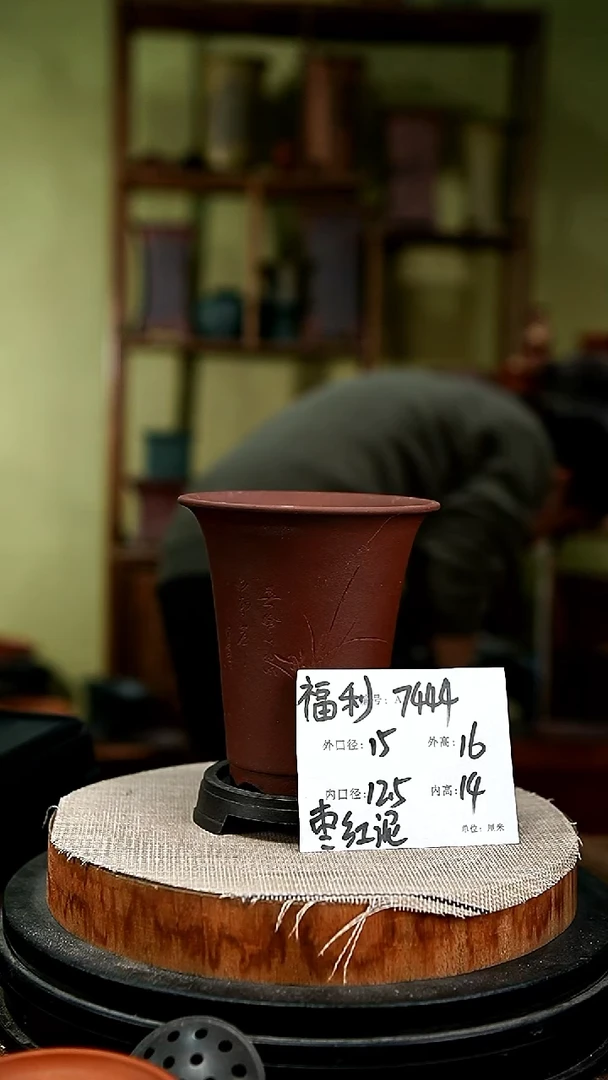 福利 7444
外口径:15 外高:16
内口径:12.5 内高:14
枣红泥 单位:厘米